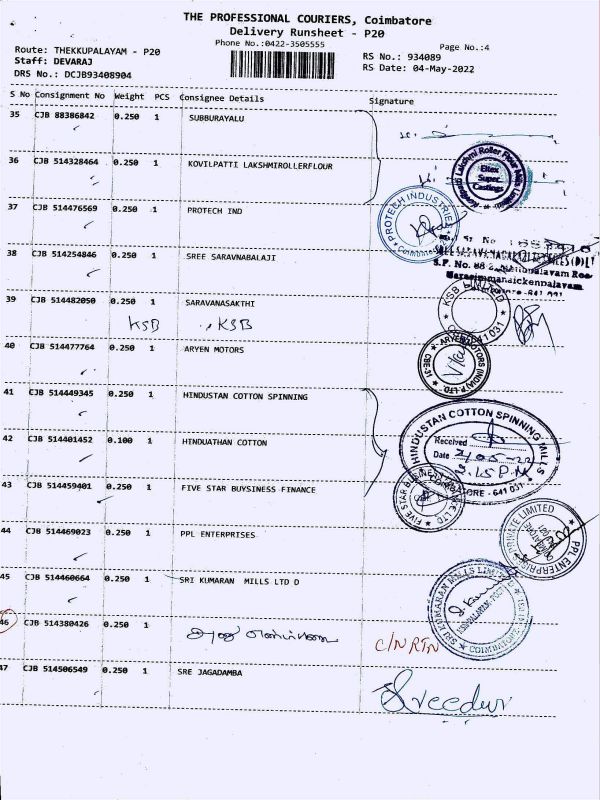 THE PROFESSIONAL COURIERS, Coimbatore
Delivery Runsheet - P20
Phone No.:0422-3505555
Page No.:4
Route: THEKKUPALAYAM - P20
Staff: DEVARAJ
DRS No.: DCJB93408904
RS No.: 934089
RS Date: 04-May-2022
S No Consignment No Weight PCS Consignee Details Signature
35 CJB 88386842 0.250 1 SUBBURAYALU
36 CJB 514328464 0.250 1 KOVILPATTI LAKSHMIROLLERFLOUR
Lakshmi Roller Flour Mills Limited
Eltex Super Castings
37 CJB 514476569 0.250 1 PROTECH IND
PROTECH INDUSTRIES
Coimbatore
38 CJB 514254846 0.250 1 SREE SARAVNABALAJI
S.F. No. 88
Narasimmanaickenpalayam
39 CJB 514482050 0.250 1 SARAVANASAKTHI
KSB KSB
KSB LIMITED
641 031
40 CJB 514477764 0.250 1 ARYEN MOTORS
ARYEN MOTORS (INDIA) P. LTD.
CBE-31
41 CJB 514449345 0.250 1 HINDUSTAN COTTON SPINNING
HINDUSTAN COTTON SPINNING MILLS
Received
Date
3.15 PM
COIMBATORE - 641 031
42 CJB 514401452 0.100 1 HINDUATHAN COTTON
43 CJB 514459401 0.250 1 FIVE STAR BUYSINESS FINANCE
FIVE STAR BUSINESS FINANCE LTD
44 CJB 514469023 0.250 1 PPL ENTERPRISES
PPL ENTERPRISES PRIVATE LIMITED
45 CJB 514460664 0.250 1 SRI KUMARAN MILLS LTD D
SRI KUMARAN MILLS LIMITED
COIMBATORE
46 CJB 514380426 0.250 1
C/N RTN
47 CJB 514506549 0.250 1 SRE JAGADAMBA
Sreedevi